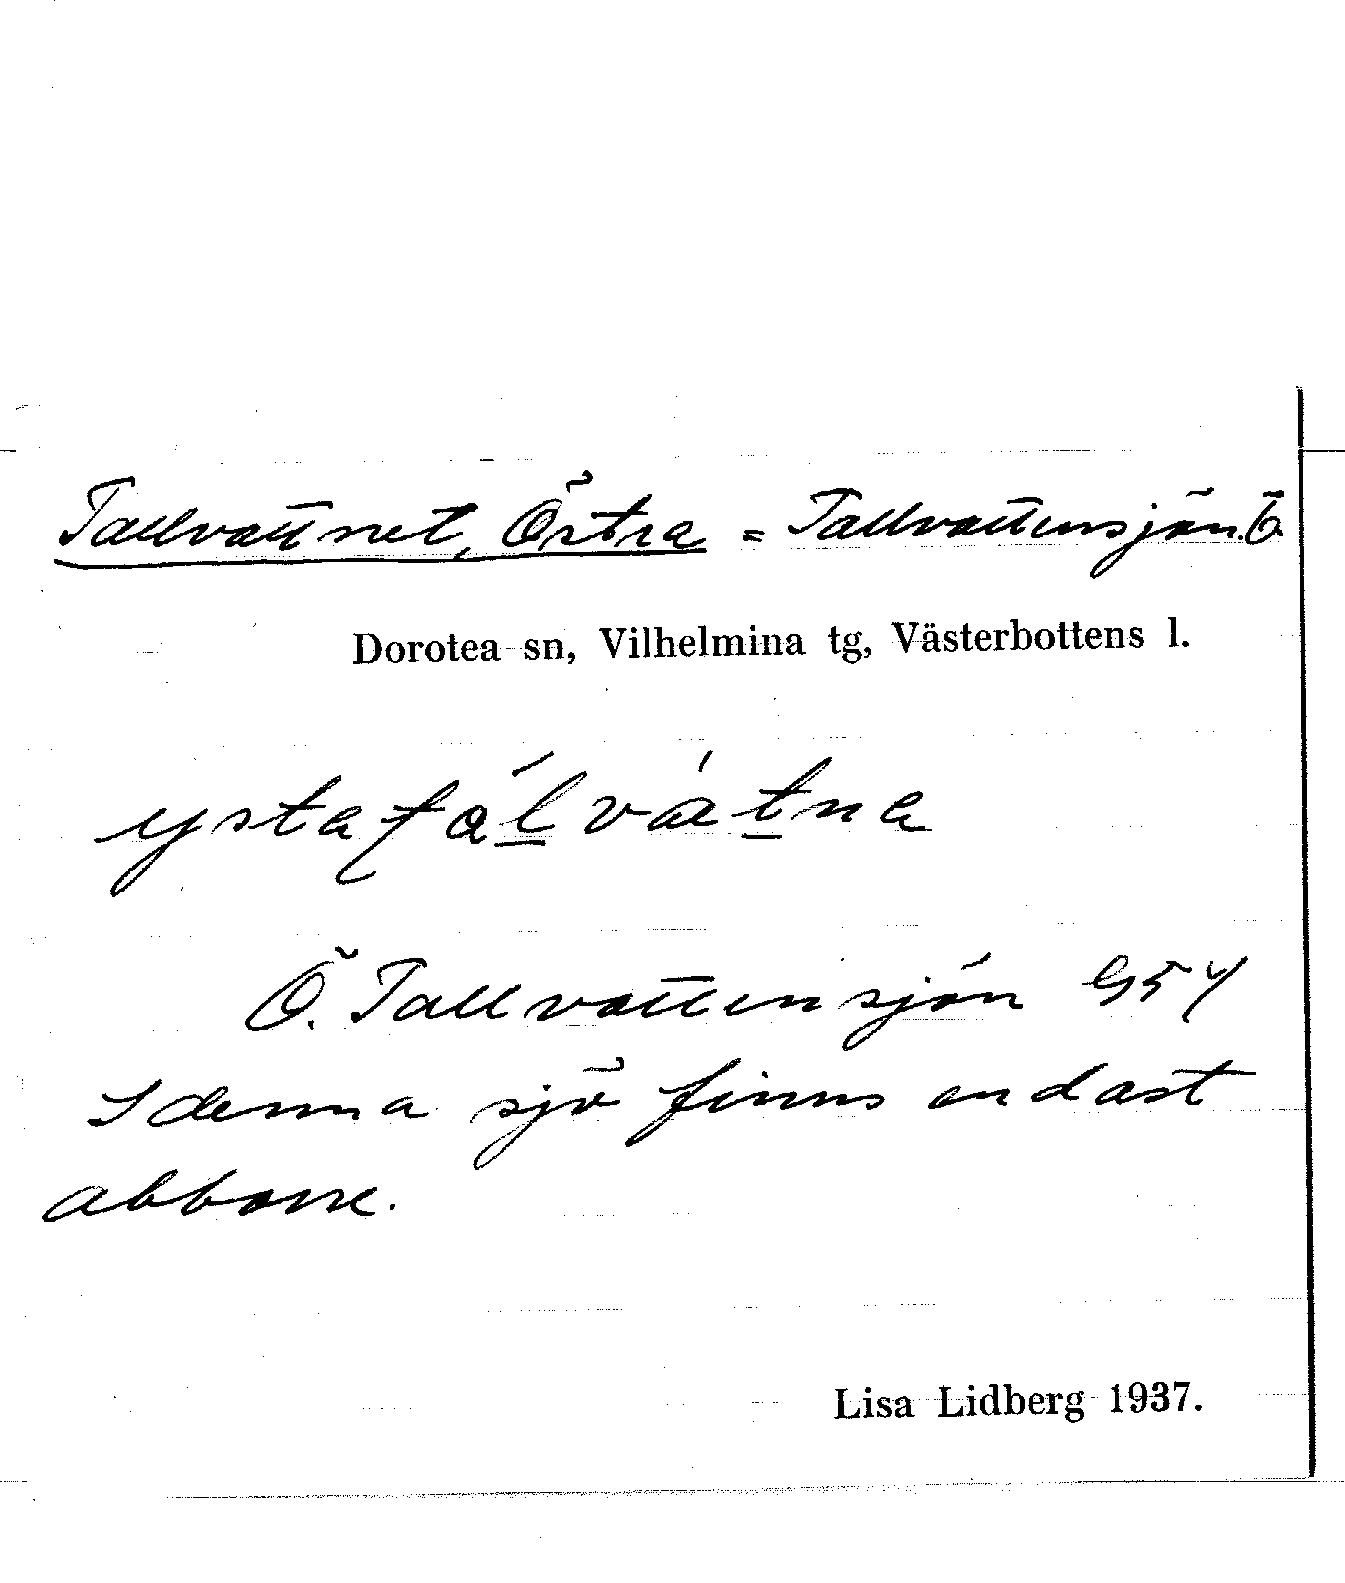 Tallvattnet, Östra = Tallvattensjön. Ö
Dorotea sn, Vilhelmina tg, Västerbottens l.
Ö. Tallvattensjön G54
I denna sjö finns endast
abborre.
Lisa Lidberg 1937.